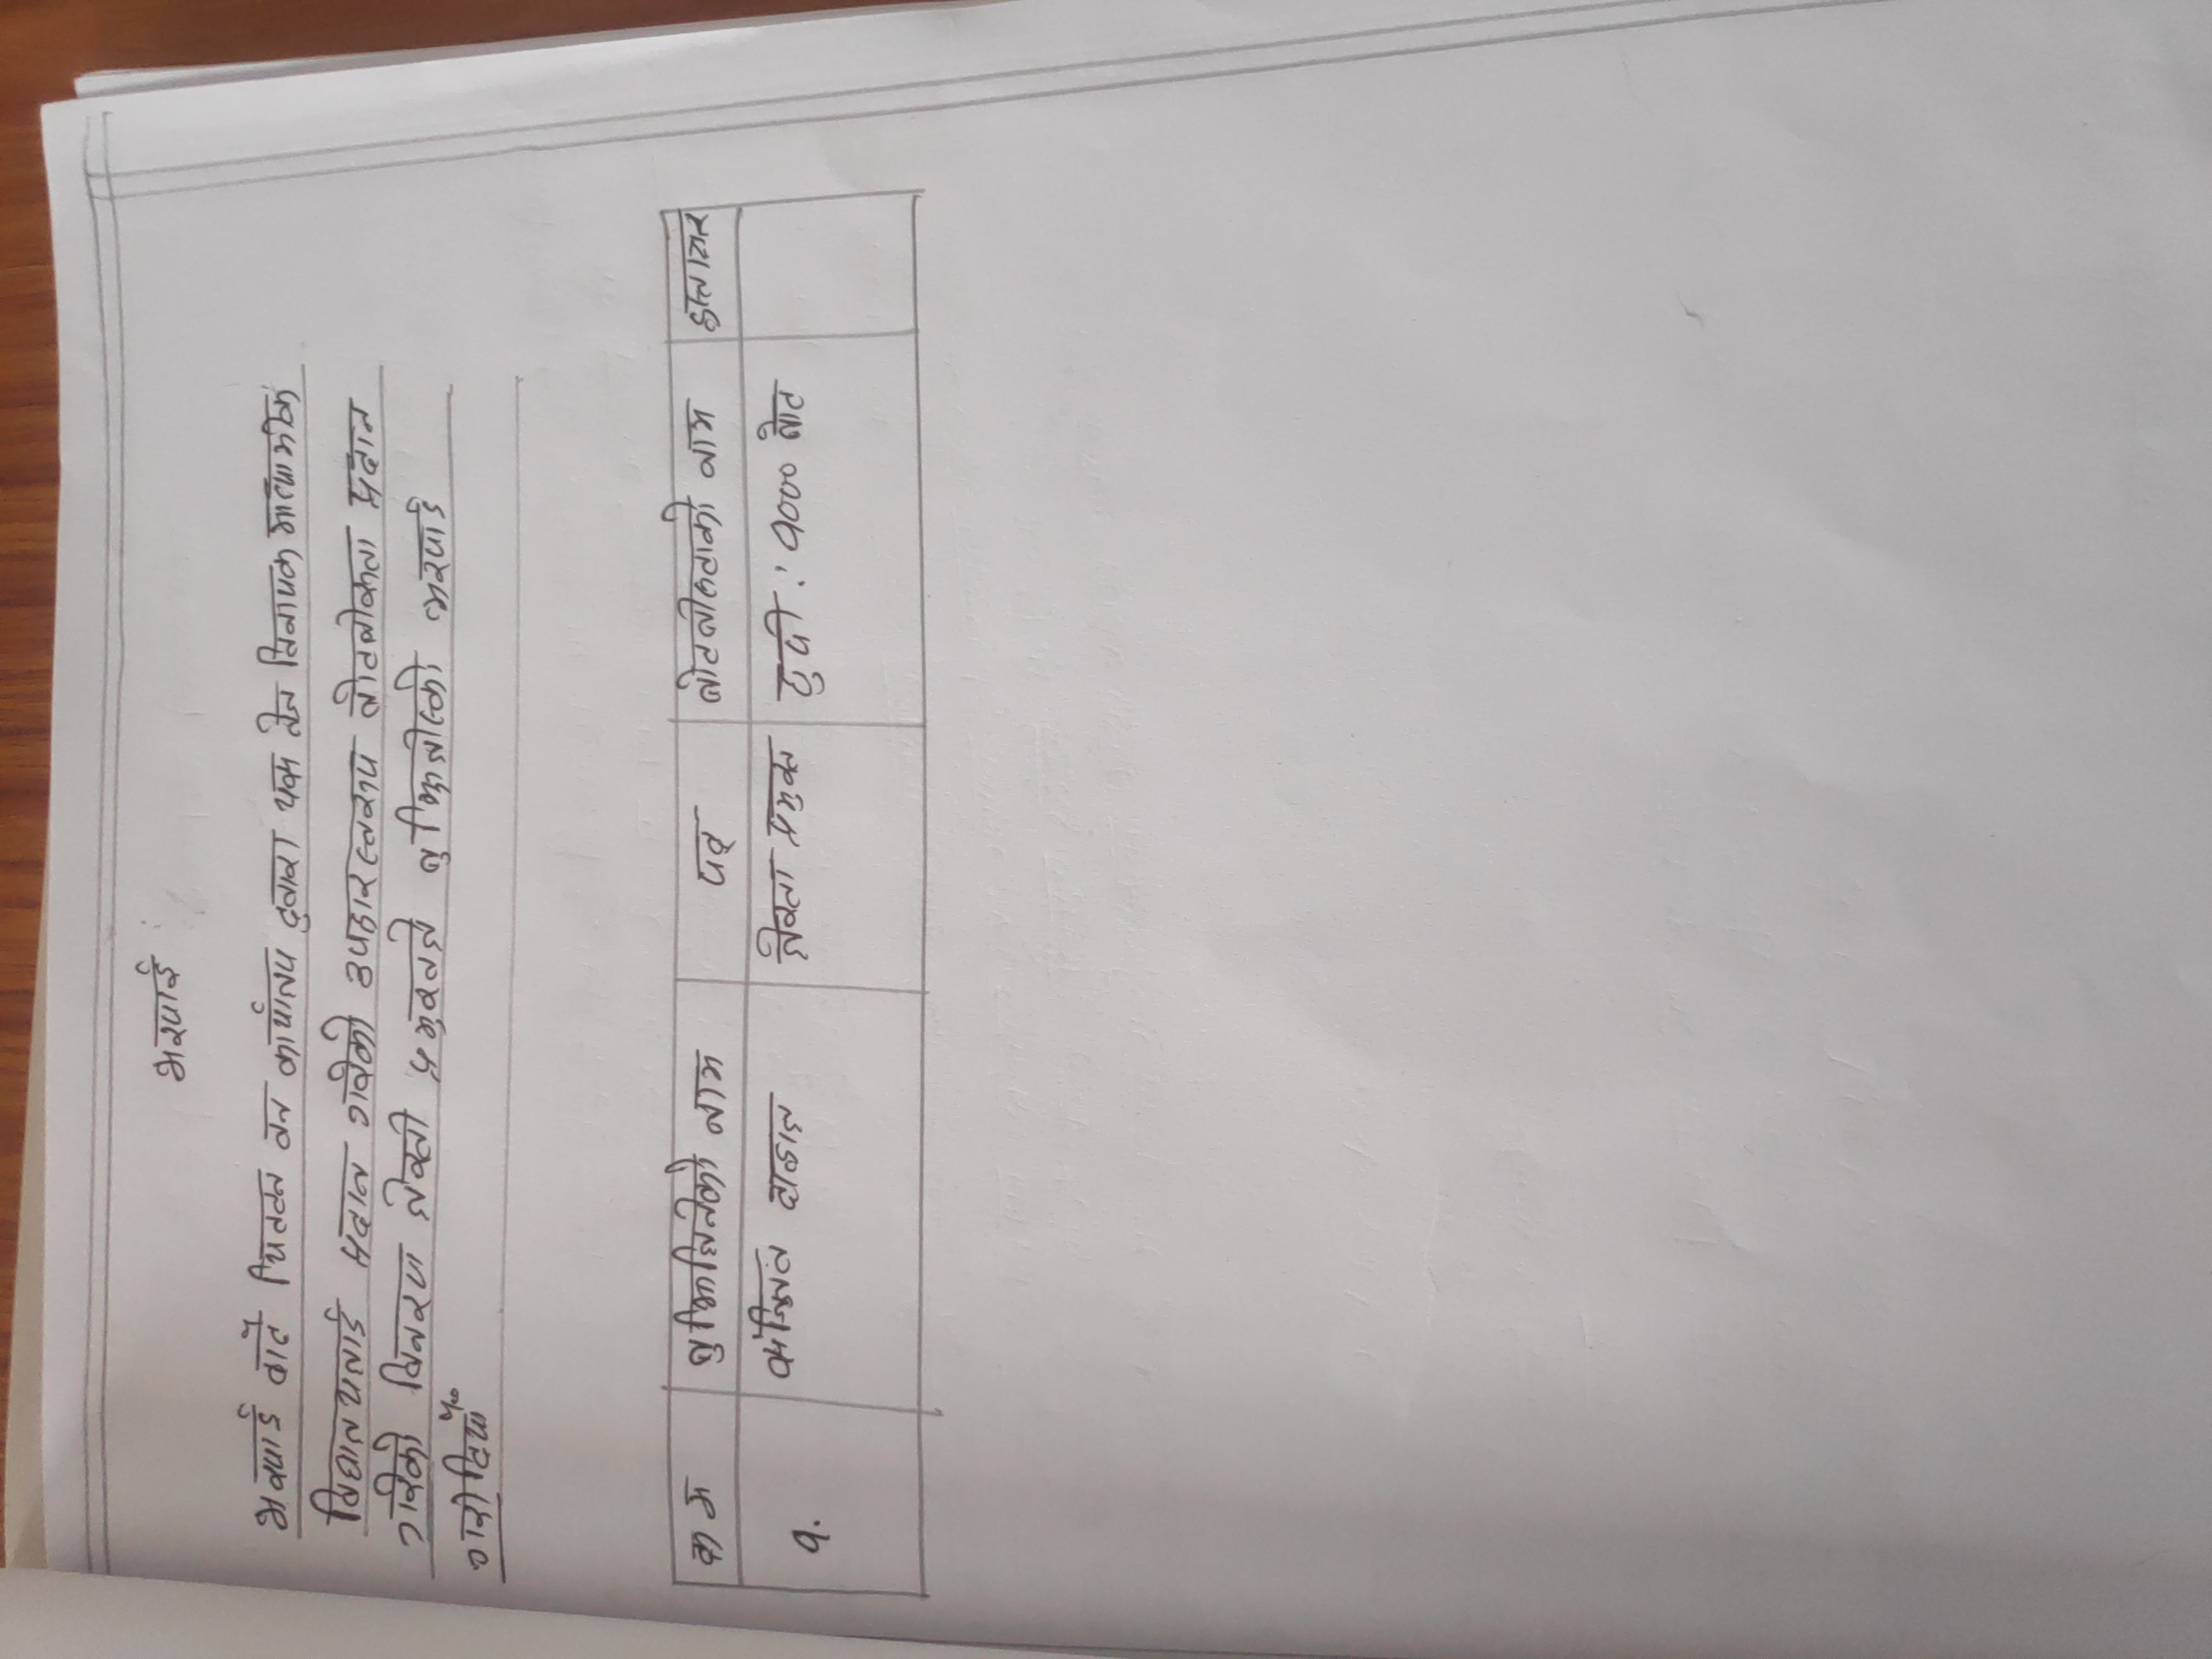 भरपाई
भरपाई बाटै चितवन वन कार्यालय दुवारा यस सेन विनायक माध्यामीक
विद्यालयलाई प्रदान गरेको उपहारस्वरुप बोटबीरुवा प्रदान
गरेको विवरण लेखी प्रमुखले बुझिलीएको भरपाई
गरी दियौँ
क्र म बुझिलिनेको नाम पद बोटबीरुवाको नाम हस्ताक्षर
१. दाहाल लेखा प्रमुख टुपी : १००० बोट